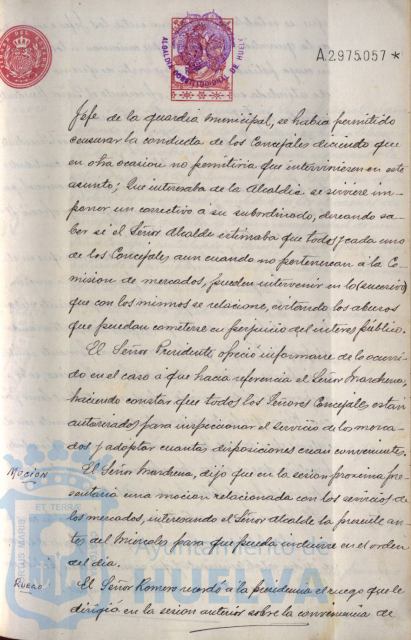 A.2975.057 *
ALCALDIA CONSTITUCIONAL DE HUELVA
Jefe de la guardia municipal, se habia permitido
censurar la conducta de los Concejales diciendo que
en otra ocasion no permitiria que intervinieren en este
asunto; que interesaba de la Alcaldia se sirviese im-
poner un correctivo a su subordinado, deseando sa-
ber si el Señor Alcalde estimaba que todos y cada uno
de los Concejales aun cuando no pertenezcan á la Co-
mision de mercados, pueden intervenir en lo (sucesivo)
que con los mismos se relacione, evitando los abusos
que puedan cometerse en perjuicio del interes público.
El Señor Presidente ofreció informarse de lo ocurri-
do en el caso a que hacia referencia el Señor Marchena,
haciendo constar que todos los Señores Concejales estan
autorizados para inspeccionar el servicio de los merca-
dos y adoptar cuantas disposiciones crean convenientes.
Mocion
El Señor Marchena, dijo que en la sesion proxima pre-
sentaria una mocion relacionada con los servicios de
los mercados, interesando el Señor Alcalde la presente an-
tes del Miercoles para que pueda incluirse en el orden
del dia.
Ruego
El Señor Romero recordó a la presidencia el ruego que le
dirigió en la sesion anterior sobre la conveniencia de
Ayuntamiento de
HUELVA